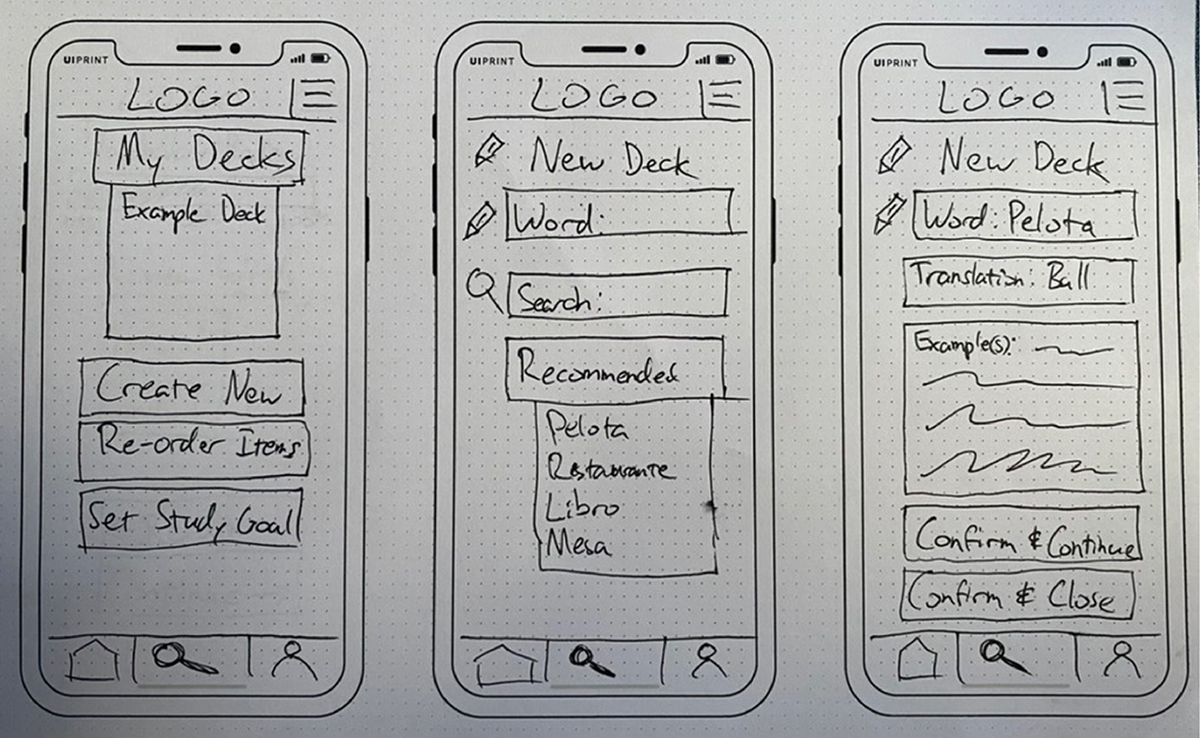 UIPRINT
LOGO
My Decks
Example Deck
Create New
Re-order Items
Set Study Goal
UIPRINT
LOGO
New Deck
Word:
Search:
Recommended
Pelota
Restaurante
Libro
Mesa
UIPRINT
LOGO
New Deck
Word: Pelota
Translation: Ball
Example(s):
Confirm & Continue
Confirm & Close